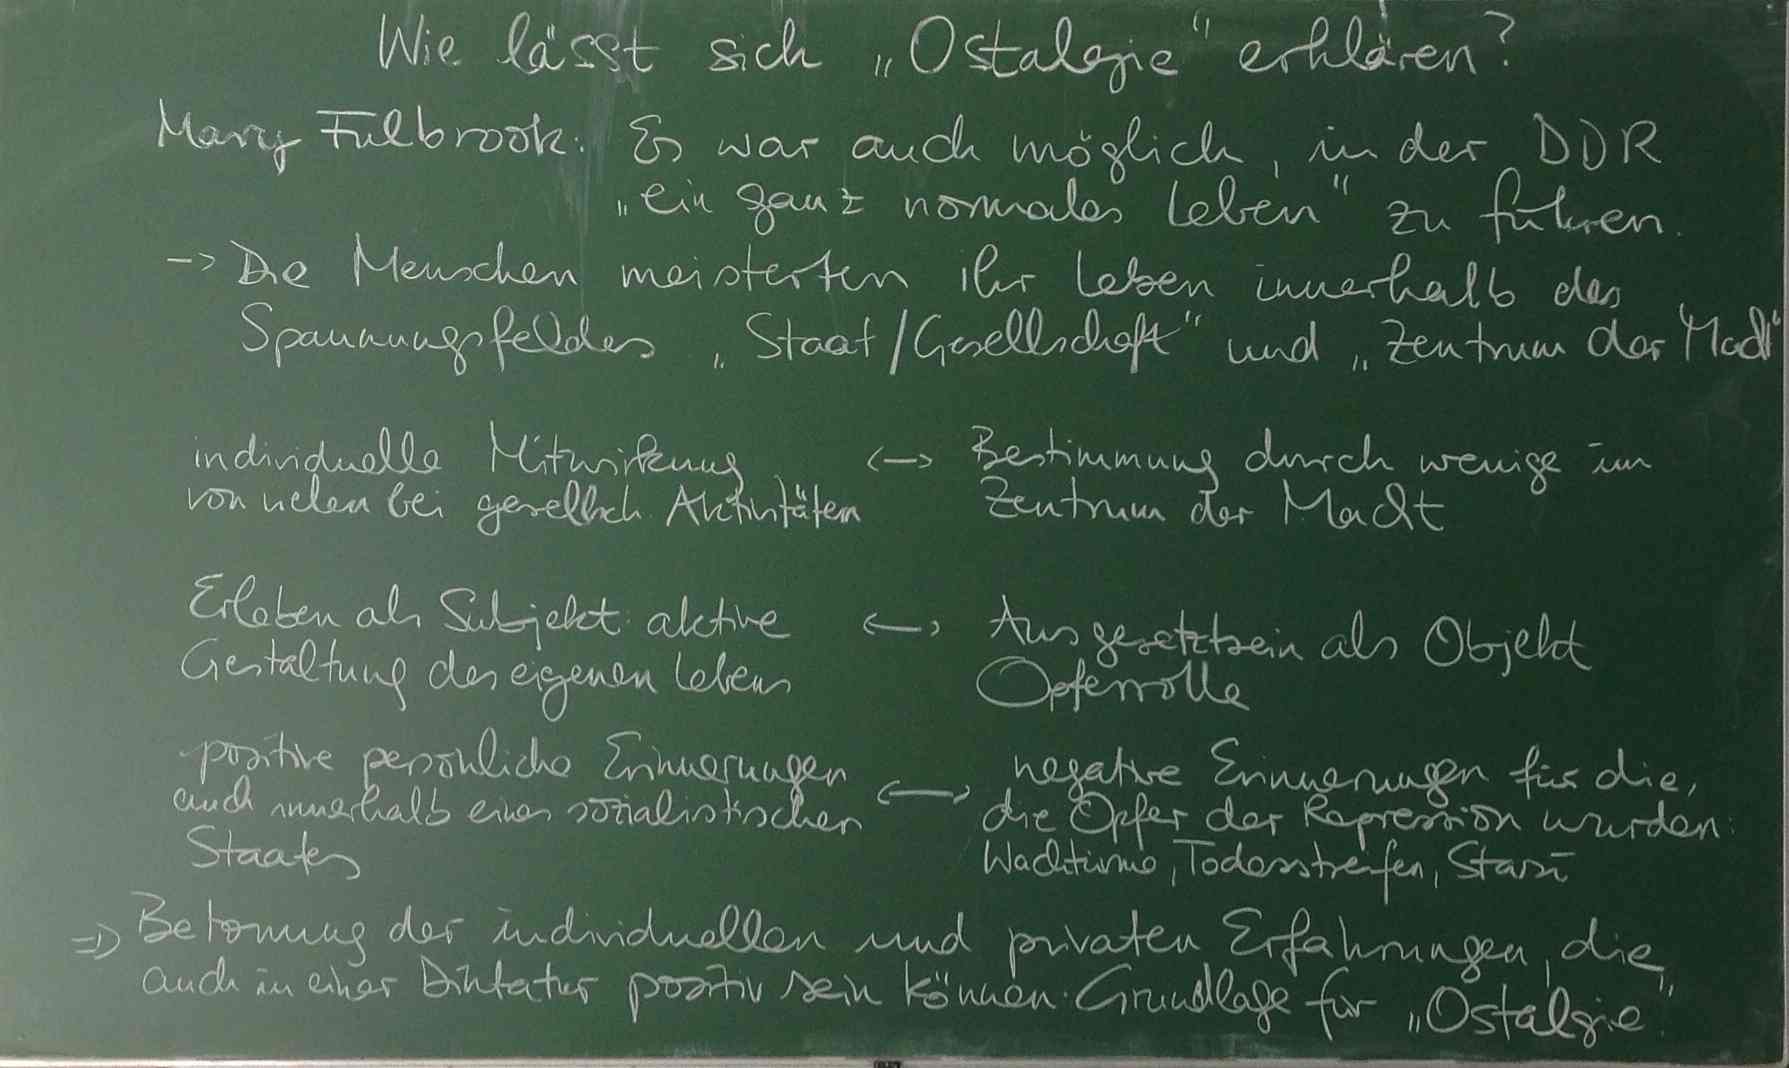 Wie lässt sich „Ostalgie" erklären?
Mary Fulbrook: Es war auch möglich, in der DDR
„ein ganz normales Leben" zu führen.
-> Die Menschen meisterten ihr Leben innerhalb des
Spannungsfeldes „Staat/Gesellschaft" und „Zentrum der Macht"
individuelle Mitwirkung <-> Bestimmung durch wenige im
von vielen bei gesellsch. Aktivitäten Zentrum der Macht
Erleben als Subjekt: aktive <-> Ausgesetztsein als Objekt
Gestaltung des eigenen Lebens Opferrolle
positive persönliche Erinnerungen <-> negative Erinnerungen für die,
auch innerhalb eines sozialistischen die Opfer der Repression wurden:
Staates Wachtürme, Todesstreifen, Stasi
=> Betonung der individuellen und privaten Erfahrungen, die
auch in einer Diktatur positiv sein können: Grundlage für „Ostalgie".